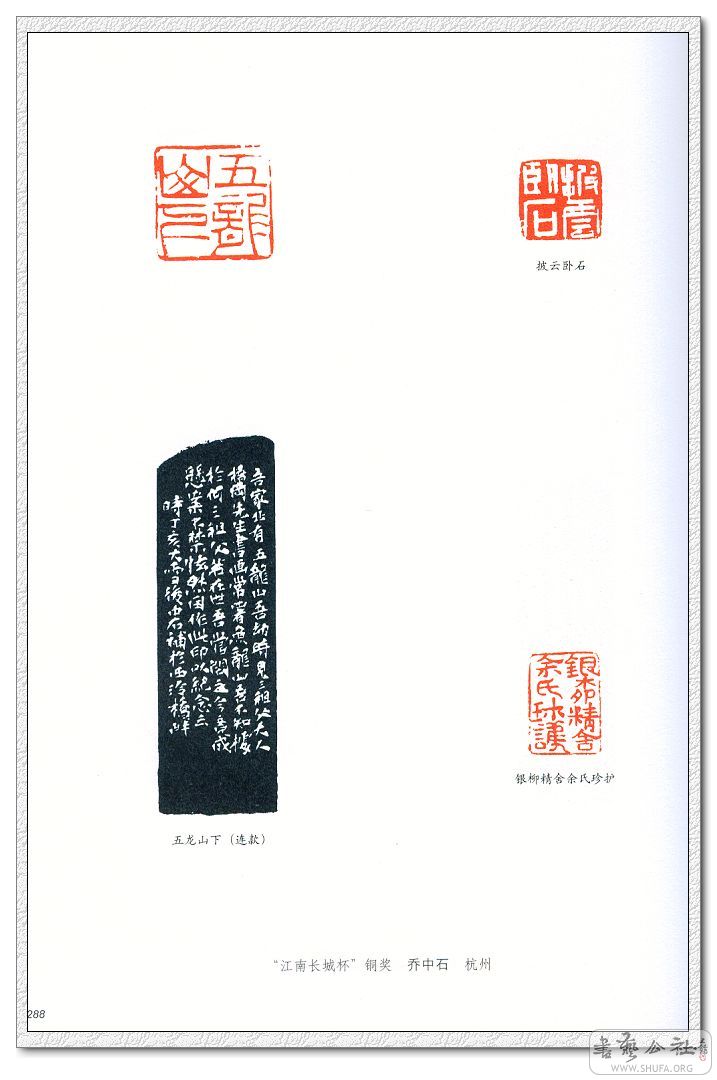 五龍
山下
披雲
臥石
披云卧石
吾家北有五龍山吾幼時見三祖父大人
先生書画常署魚龍山吾不知據
於何三祖父若在世吾當問之今竟成
懸案不禁悵然因作此印以紀念之
時丁亥大雪中石補於西泠橋畔
五龙山下（连款）
銀柳精舍
余氏珍護
银柳精舍余氏珍护
“江南长城杯”铜奖 乔中石 杭州
288
書藝公社
WWW.SHUFA.ORG